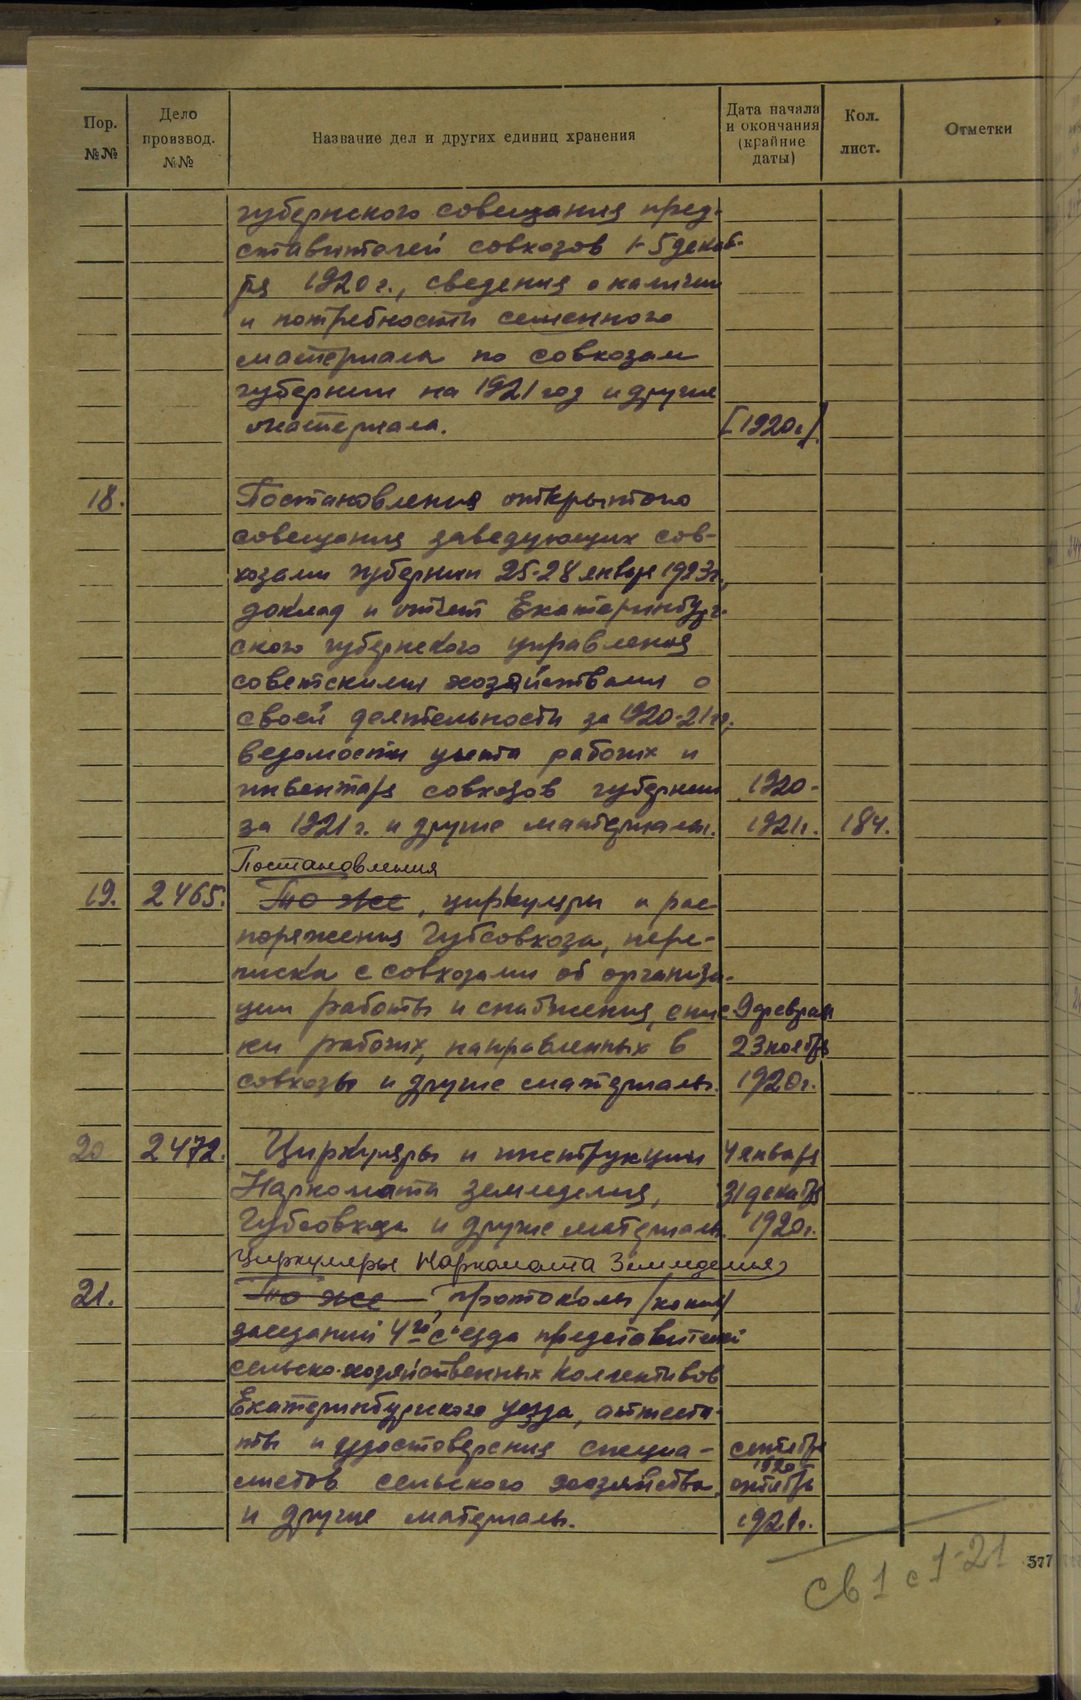 Пор. №№ Дело производ. №№ Название дел и других единиц хранения Дата начала и окончания (крайние даты) Кол. лист. Отметки
губернского совещания пред-
ставителей совхозов 1-5 декаб-
ря 1920 г., сведения о наличии
и потребности семенного
материала по совхозам
губернии на 1921 год и другие
материалы. [1920г.]
18. Постановления открытого
совещания заведующих сов-
хозами губернии 25-28 января 1923г.,
доклад и отчет Екатеринбург-
ского губернского управления
советскими хозяйствами о
своей деятельности за 1920-21гг.,
ведомости учета рабочих и
инвентаря совхозов губернии 1920-
за 1921 г. и другие материалы. 1921г. 184.
Постановления
19. 2465. То же, циркуляры и рас-
поряжения Губсовхоза, пере-
писка с совхозами об организа-
ции работы и снабжения, спис- 9 февраля
ки рабочих, направленных в 23 ноября
совхозы и другие материалы. 1920г.
20 2472. Циркуляры и инструкции 4 января
Наркомата земледелия, 31 декабря
Губсовхоза и другие материалы. 1920г.
Циркуляры Наркомата Земледелия,
21. То же, протоколы /копии/
заседаний 4го с"езда представителей
сельско-хозяйственных коллективов
Екатеринбургского уезда, аттеста-
ты и удостоверения специа- сентябрь
1920
листов сельского хозяйства октябрь
и другие материалы. 1921г.
св 1 с 1-21
577